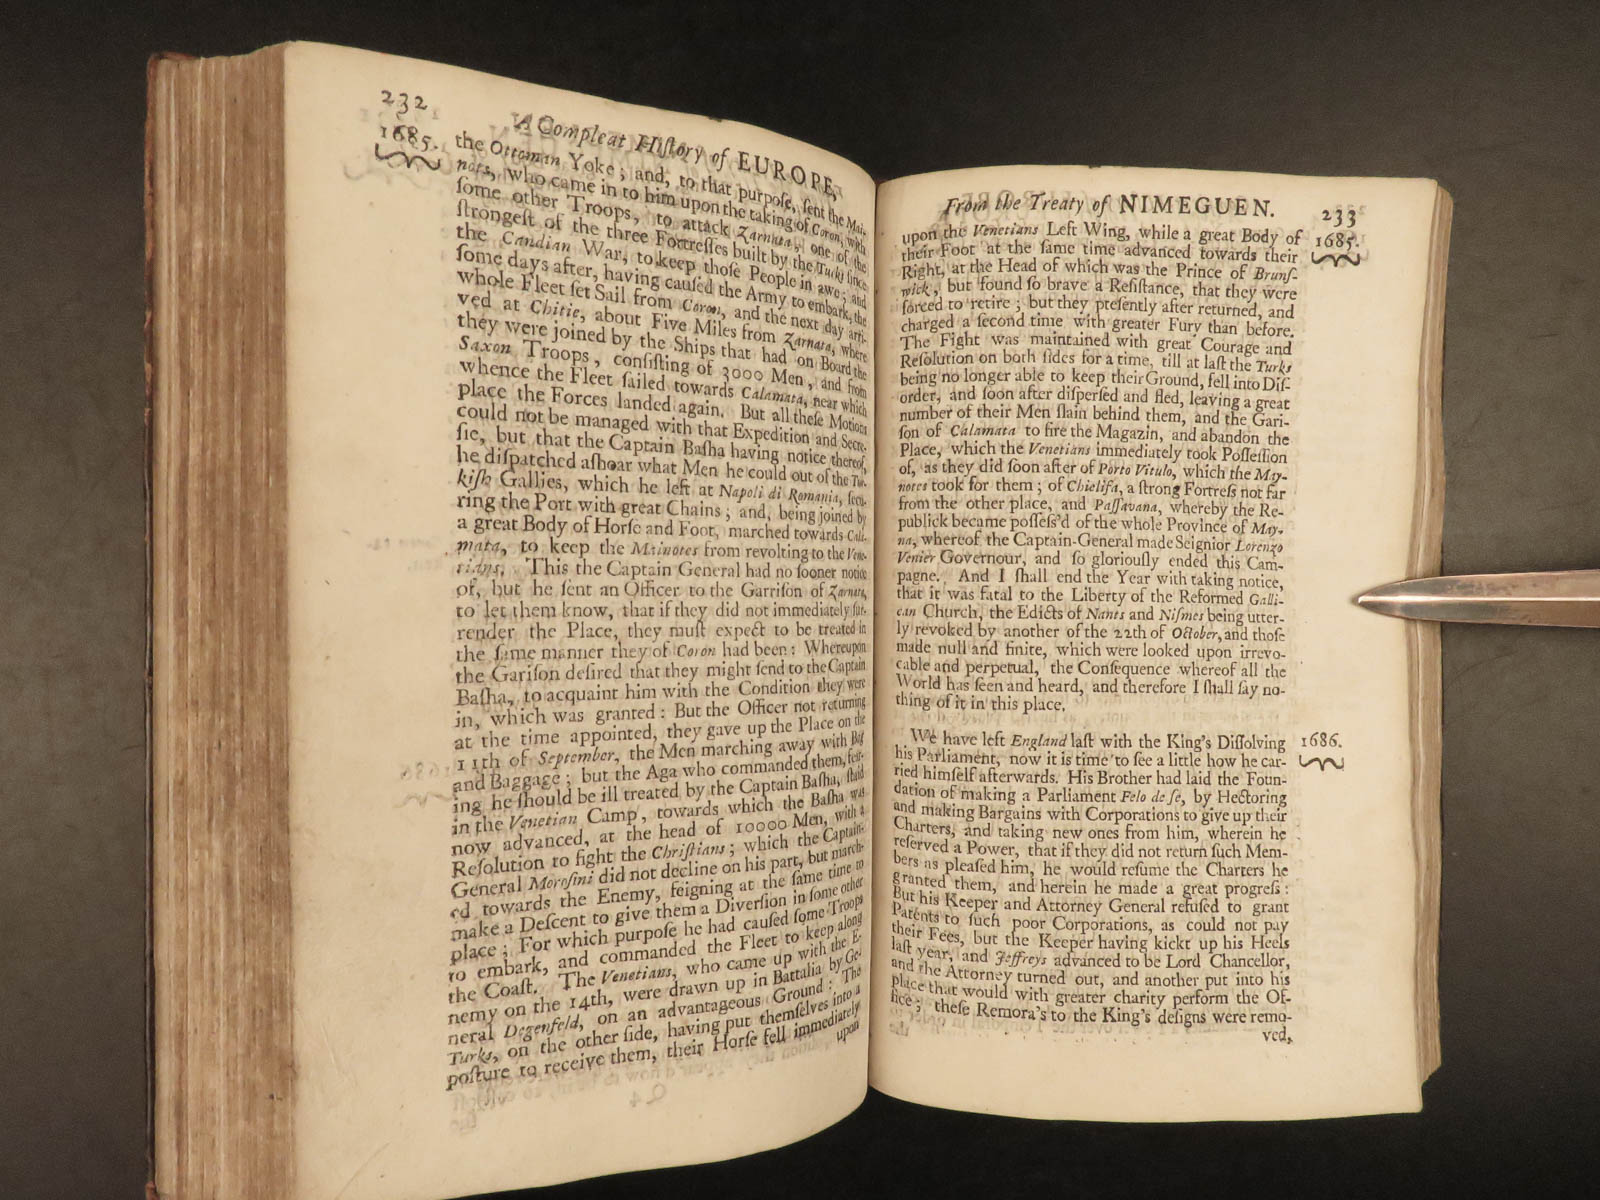 232
A Compleat Hiſtory of EUROPE,
1685.
the Ottoman Yoke; and, to that purpoſe, ſent the Mai-
nots, who came in to him upon the taking of Coron, with
ſome other Troops, to attack Zarnata, one of the
ſtrongeſt of the three Fortreſſes built by the Turks ſince
the Candian War, to keep thoſe People in awe; and
ſome days after, having cauſed the Army to embark, the
whole Fleet ſet Sail from Coron, and the next day arri-
ved at Chitie, about Five Miles from Zarnata, where
they were joined by the Ships that had on Board the
Saxon Troops, conſiſting of 3000 Men, and from
whence the Fleet ſailed towards Calamata, near which
place the Forces landed again. But all theſe Motions
could not be managed with that Expedition and Secre-
ſie, but that the Captain Baſha having notice thereof,
he diſpatched aſhoar what Men he could out of the Tur-
kiſh Gallies, which he left at Napoli di Romania, ſecu-
ring the Port with great Chains; and, being joined by
a great Body of Horſe and Foot, marched towards Cala-
mata, to keep the Mainotes from revolting to the Vene-
tians. This the Captain General had no ſooner notice
of, but he ſent an Officer to the Garriſon of Zarnata,
to let them know, that if they did not immediately ſur-
render the Place, they muſt expect to be treated in
the ſame manner they of Coron had been: Whereupon
the Gariſon deſired that they might ſend to the Captain
Baſha, to acquaint him with the Condition they were
in, which was granted: But the Officer not returning
at the time appointed, they gave up the Place on the
11th of September, the Men marching away with Bag
and Baggage; but the Aga who commanded them, fear-
ing he ſhould be ill treated by the Captain Baſha, ſtaid
in the Venetian Camp, towards which the Baſha was
now advanced, at the head of 10000 Men, with a
Reſolution to fight the Chriſtians; which the Captain-
General Moroſini did not decline on his part, but march-
ed towards the Enemy, feigning at the ſame time to
make a Deſcent to give them a Diverſion in ſome other
place; For which purpoſe he had cauſed ſome Troops
to embark, and commanded the Fleet to keep along
the Coaſt. The Venetians, who came up with the E-
nemy on the 14th, were drawn up in Battalia by Ge-
neral Degenfeld, on an advantageous Ground: The
Turks, on the other ſide, having put themſelves into a
poſture to receive them, their Horſe fell immediately
upon
From the Treaty of NIMEGUEN.
233
1685.
upon the Venetians Left Wing, while a great Body of
their Foot at the ſame time advanced towards their
Right, at the Head of which was the Prince of Brunſ-
wick, but found ſo brave a Reſiſtance, that they were
forced to retire; but they preſently after returned, and
charged a ſecond time with greater Fury than before.
The Fight was maintained with great Courage and
Reſolution on both ſides for a time, till at laſt the Turks
being no longer able to keep their Ground, fell into Diſ-
order, and ſoon after diſperſed and fled, leaving a great
number of their Men ſlain behind them, and the Gari-
ſon of Calamata to fire the Magazin, and abandon the
Place, which the Venetians immediately took Poſſeſſion
of, as they did ſoon after of Porto Vitulo, which the May-
notes took for them; of Chielifa, a ſtrong Fortreſs not far
from the other place, and Paſſavana, whereby the Re-
publick became poſſeſs'd of the whole Province of May-
na, whereof the Captain-General made Seignior Lorenzo
Venier Governour, and ſo gloriouſly ended this Cam-
pagne. And I ſhall end the Year with taking notice,
that it was fatal to the Liberty of the Reformed Galli-
can Church, the Edicts of Nants and Niſmes being utter-
ly revoked by another of the 22th of October, and thoſe
made null and finite, which were looked upon irrevo-
cable and perpetual, the Conſequence whereof all the
World has ſeen and heard, and therefore I ſhall ſay no-
thing of it in this place.
We have left England laſt with the King's Diſſolving
1686.
his Parliament, now it is time to ſee a little how he car-
ried himſelf afterwards. His Brother had laid the Foun-
dation of making a Parliament Felo de ſe, by Hectoring
and making Bargains with Corporations to give up their
Charters, and taking new ones from him, wherein he
reſerved a Power, that if they did not return ſuch Mem-
bers as pleaſed him, he would reſume the Charters he
granted them, and herein he made a great progreſs:
But his Keeper and Attorney General refuſed to grant
Patents to ſuch poor Corporations, as could not pay
their Fees, but the Keeper having kickt up his Heels
laſt year, and Jeffreys advanced to be Lord Chancellor,
and the Attorney turned out, and another put into his
place that would with greater charity perform the Of-
fice; theſe Remora's to the King's deſigns were remo-
ved,